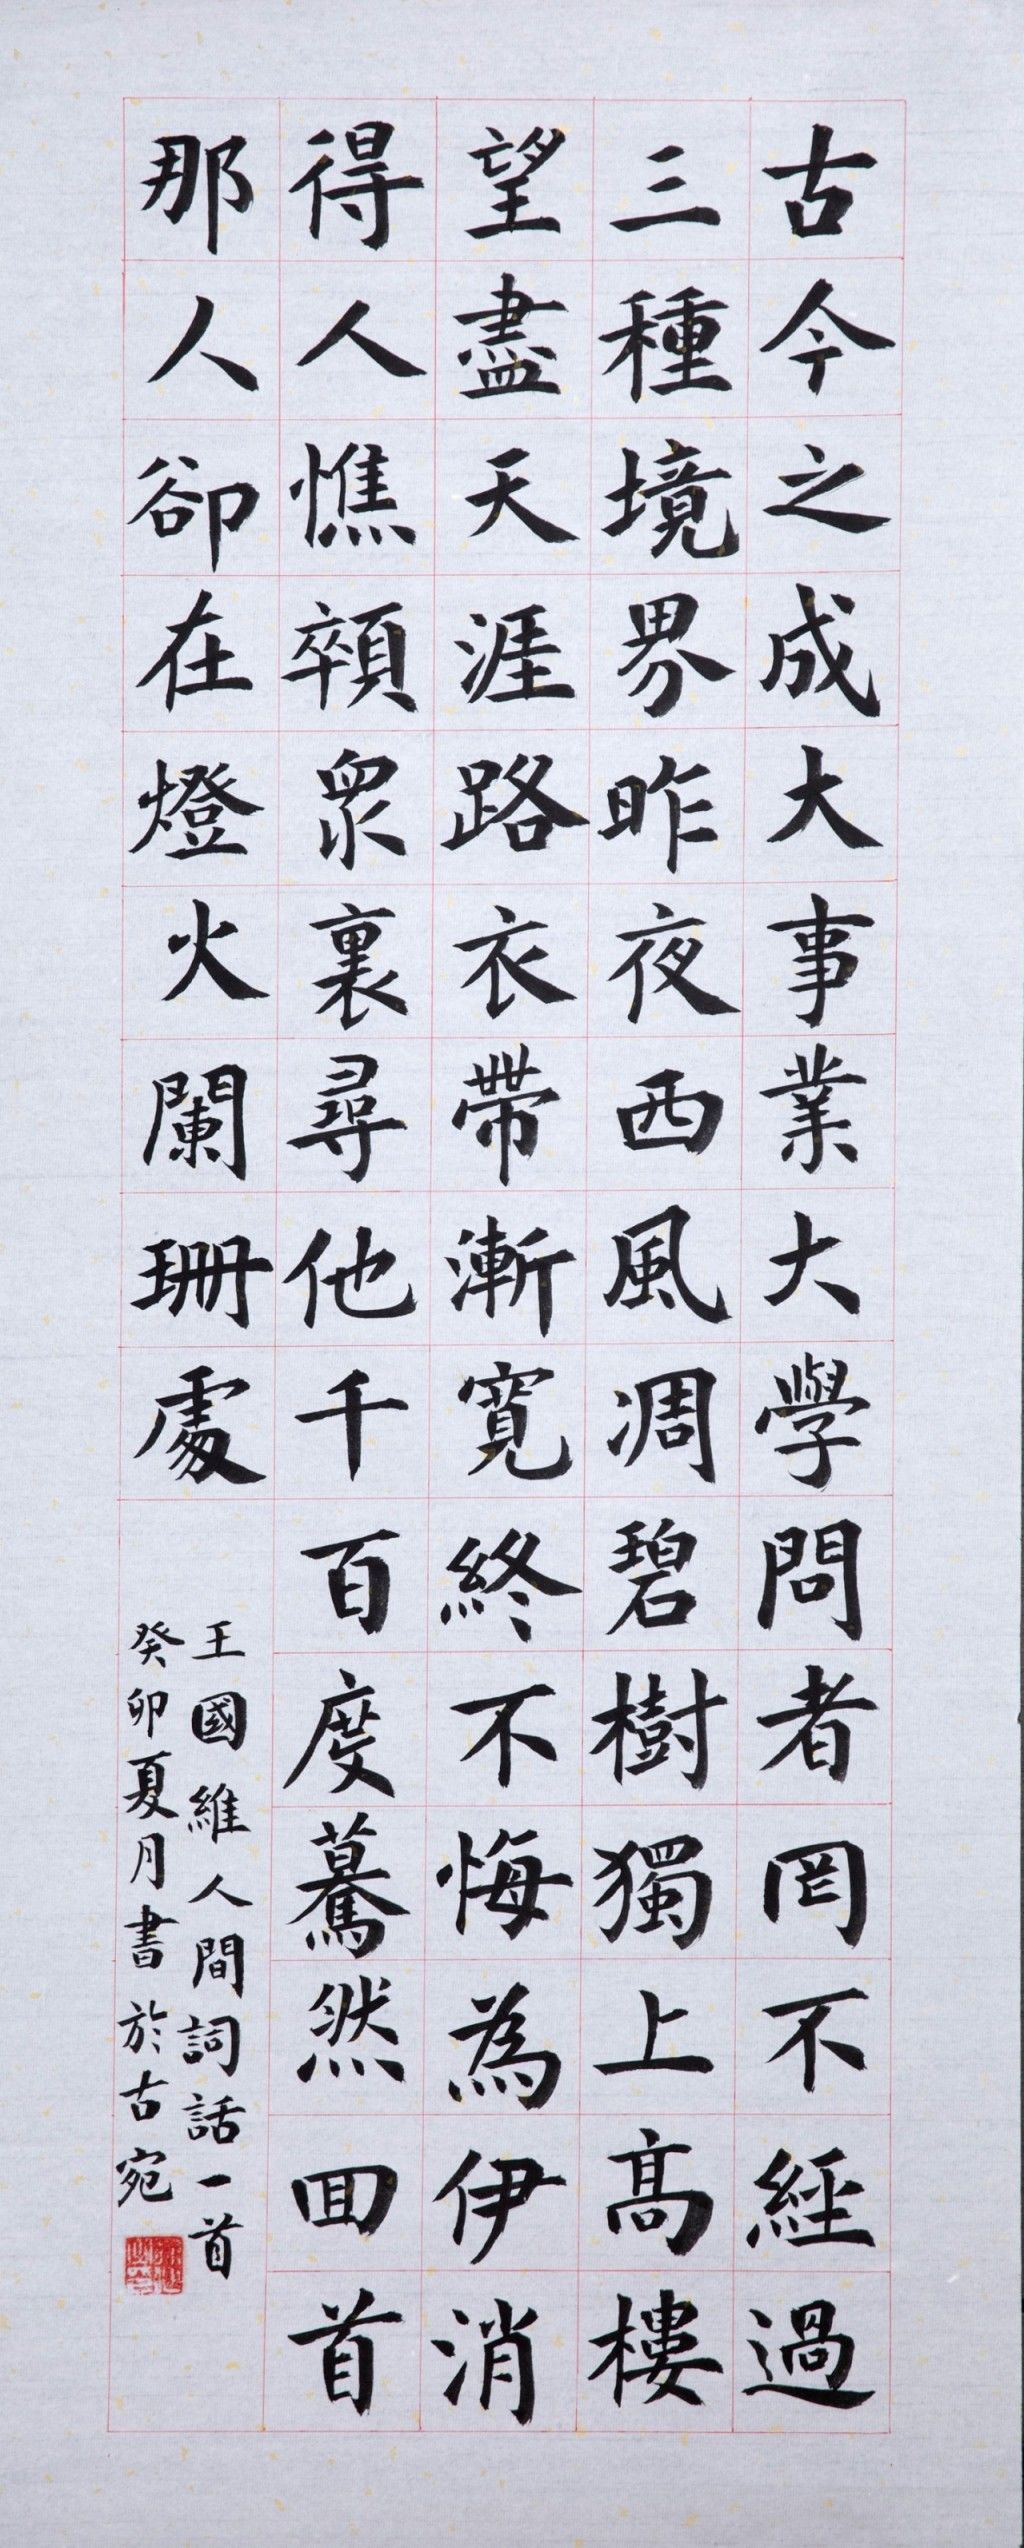 古今之成大事業大學問者罔不經過
三種境界昨夜西風凋碧樹獨上高樓
望盡天涯路衣帶漸寬終不悔為伊消
得人憔顇眾裏尋他千百度驀然回首
那人卻在燈火闌珊處
王國維人間詞話一首
癸卯夏月書於古宛